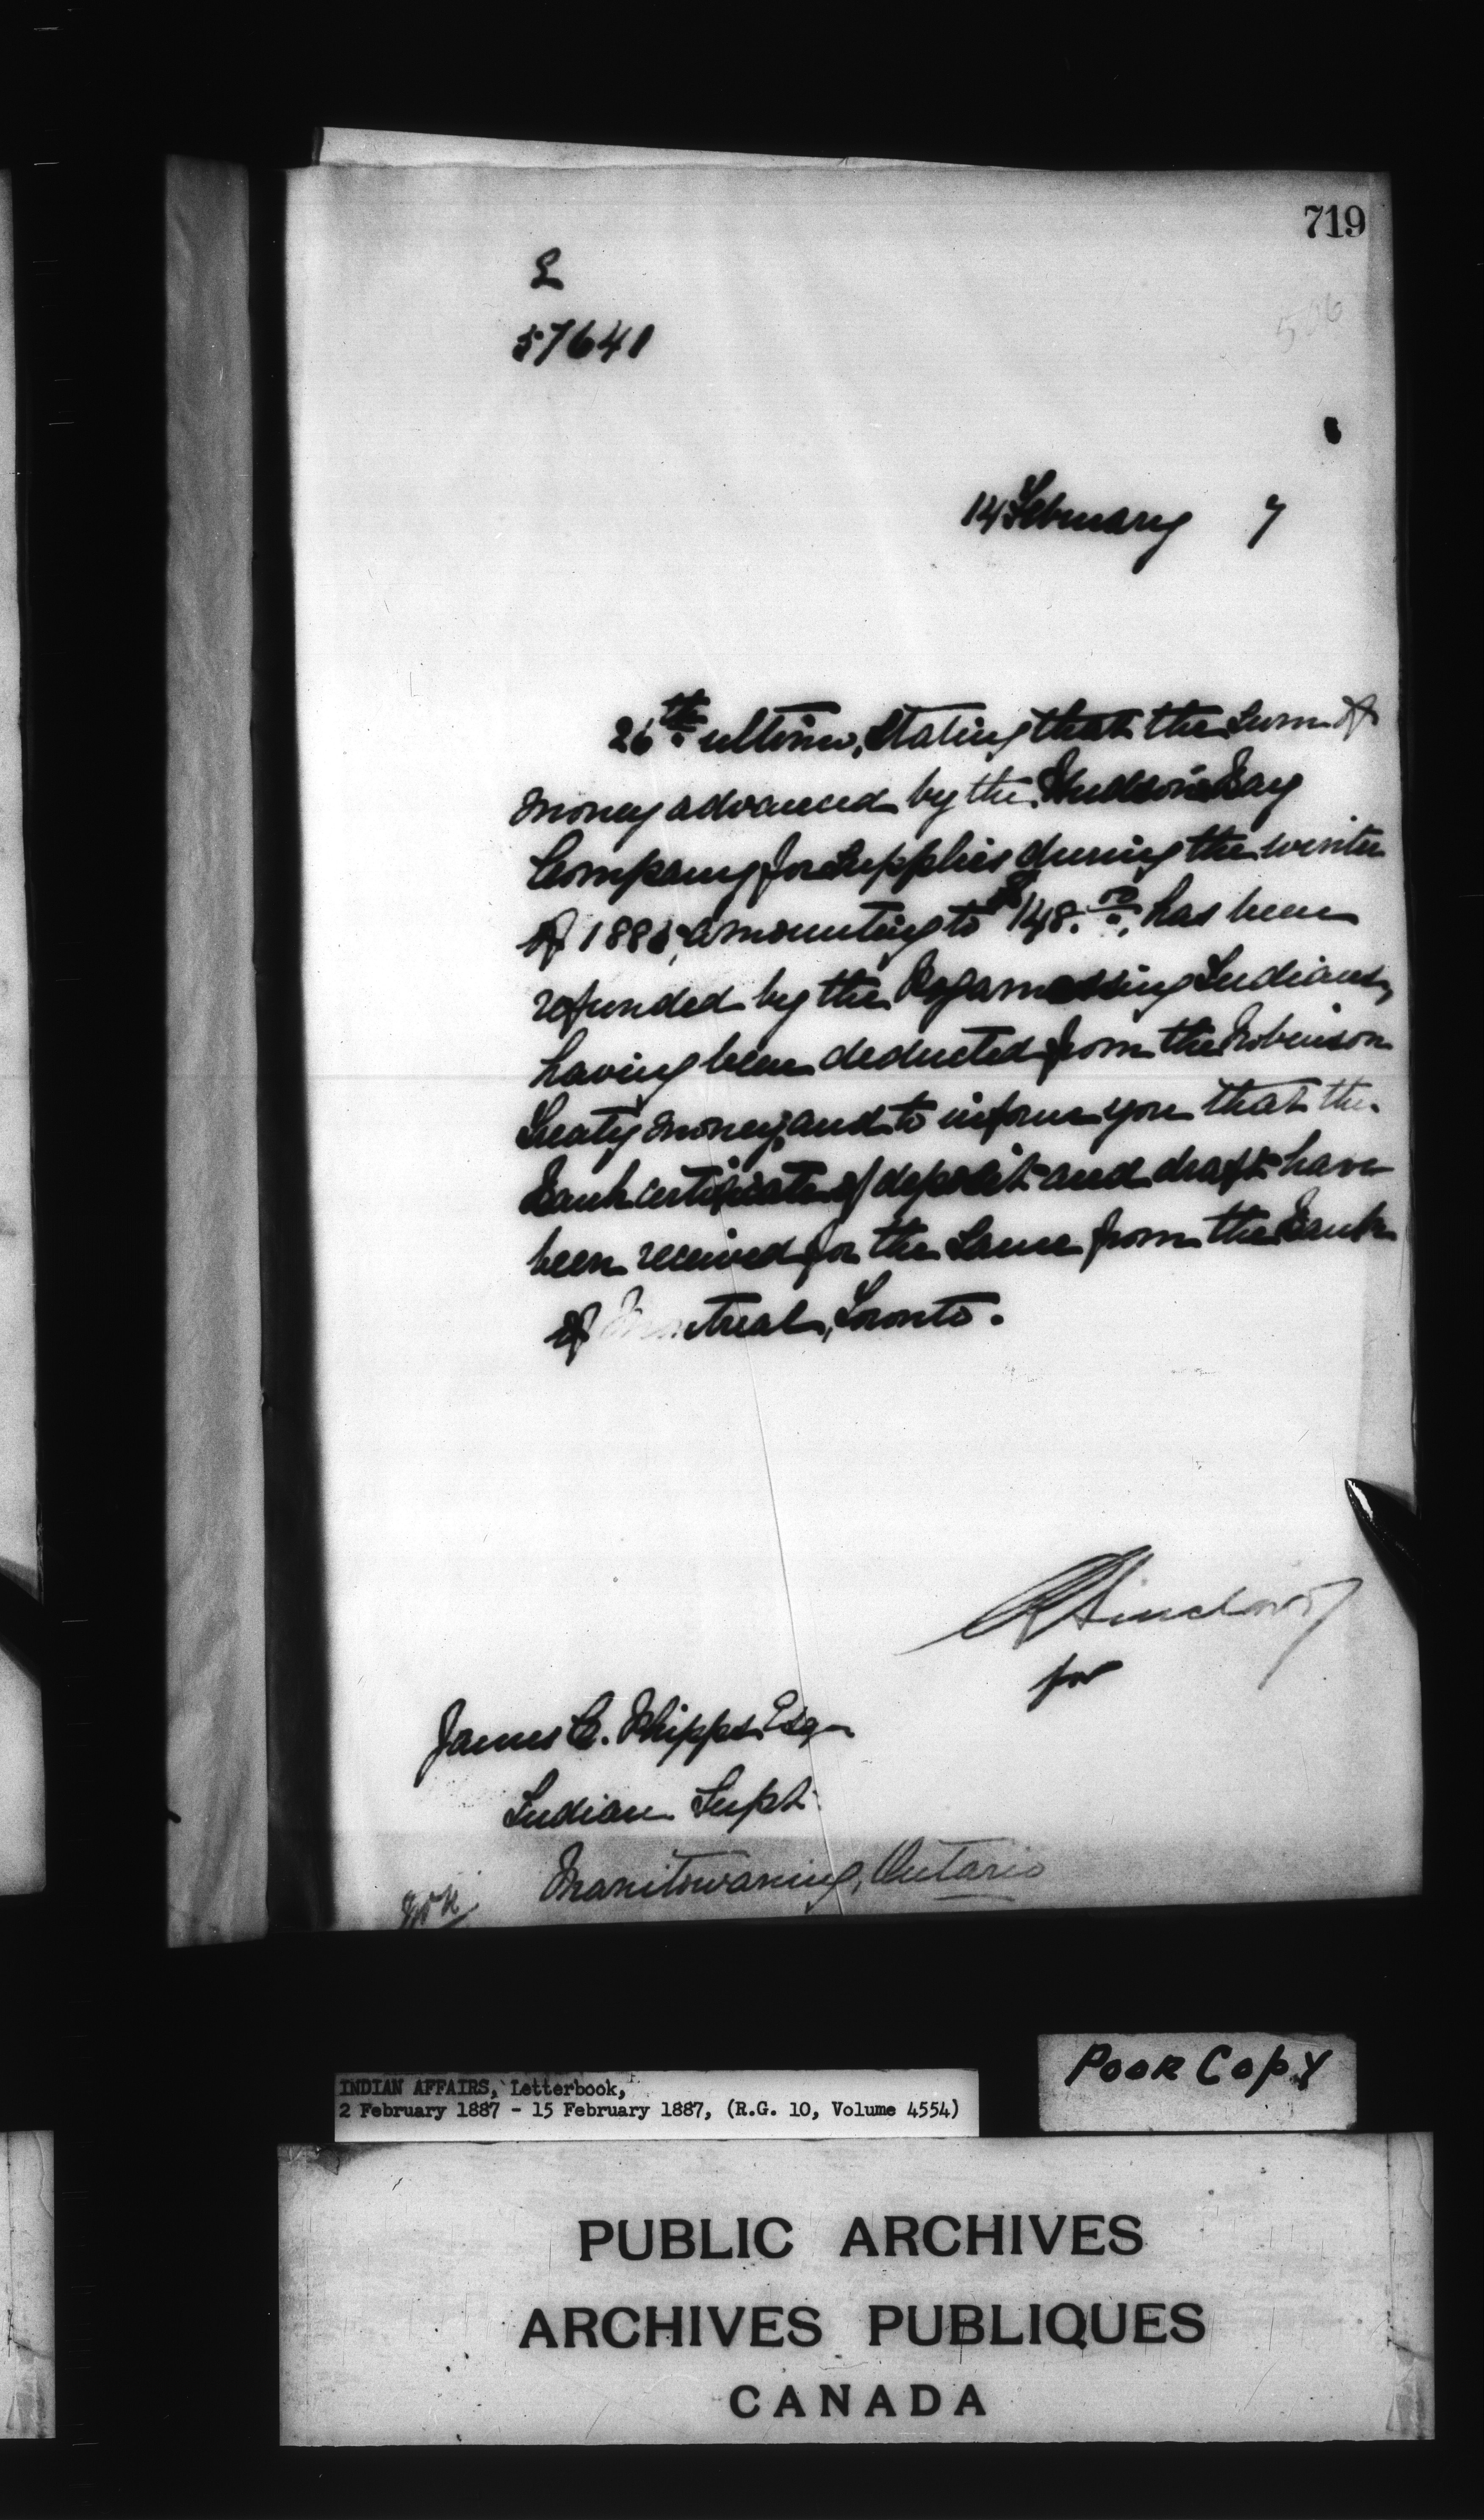 719
L
57641
506
14 February 7
26th ultimo, stating that the sum of
money advanced by the Hudson's Bay
Company for supplies during the winter
of 1885, amounting to $148.50, has been
refunded by the Indians,
having been deducted from the Robinson
Treaty money, and to inform you that the
Bank certificate of deposit and draft have
been received for the same from the Bank
of Montreal, Toronto.
R Sinclair
for
James C. Phipps Esq
Indian Supt.
Manitowaning, Ontario
POOR COPY
INDIAN AFFAIRS, Letterbook,
2 February 1887 - 15 February 1887, (R.G. 10, Volume 4554)
PUBLIC ARCHIVES
ARCHIVES PUBLIQUES
CANADA